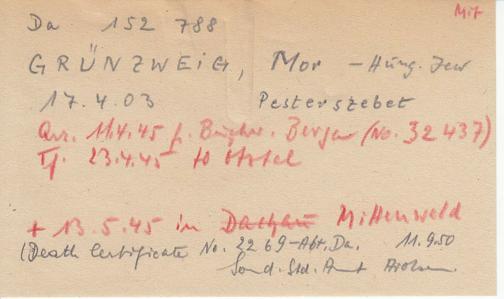 Mit
Da 152 788
GRÜNZWEIG, Mor - Hung. Jew
17.4.03 Pesterszebet
Arr. 11.4.45 f. Buchw. Bergen (No. 32 437)
Tf. 23.4.45 to
+ 13.5.45 in Dachau Mittenwald
(Death Certificate No. 2269-Abt. Da. 11.9.50
Sond. Std. Amt Arolsen.